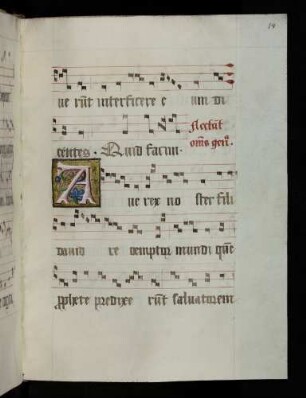 ue rūt interficere e um di
centes. Quid facim.
flectūt
om̄s genᵃ.
Aue rex no ster fili
dauid re demptor mundi quē
prophete predixe rūt saluatorem